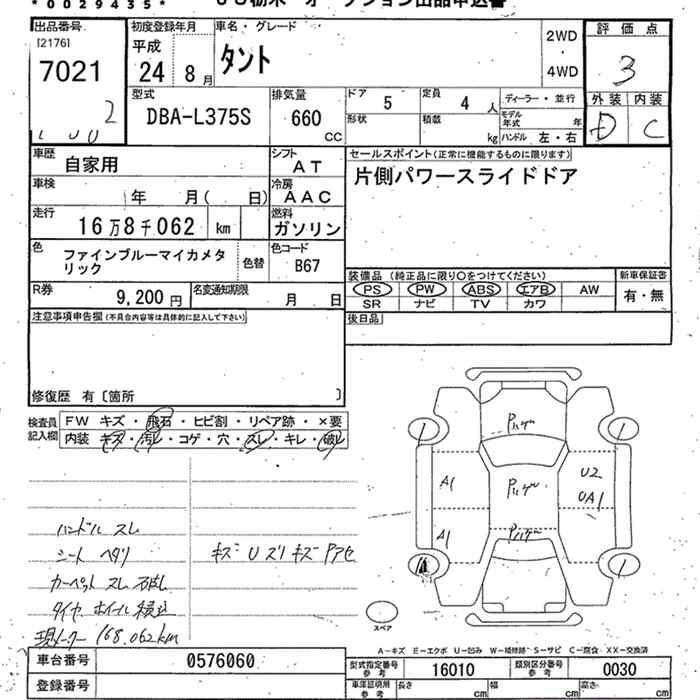 *0029435*
出品番号
[2176]
7021
2
初度登録年月
平成
24 8月
車名・グレード
タント
2WD
・
4WD
評価点
3
外装 内装
D C
型式
DBA-L375S
排気量
660
CC
ドア
5
定員
4
人
ディーラー・並行
形状
積載
kg
モデル年式
年
ハンドル 左・右
車歴
自家用
シフト
AT
セールスポイント(正常に機能するものに限ります)
片側パワースライドドア
車検
年 月( 日)
冷房
AAC
走行
16万8千062
km
燃料
ガソリン
色
ファインブルーマイカメタリック
色替
色コード
B67
装備品 (純正品に限り○をつけてください)
新車保証書
PS PW ABS エアB AW
有・無
SR ナビ TV カワ
R券
9,200 円
名変通知期限
月 日
後日品
注意事項申告欄(不具合内容等は具体的に記入して下さい)
修復歴 有〔箇所 〕
検査員記入欄
FW キズ・飛石・ヒビ割・リペア跡・×要
内装 キズ・汚れ・コゲ・穴・スレ・キレ・破レ
ハンドル スレ
シート ヘタリ
キズ Uズリ キズ Pアセ
カーペット スレ 破れ
タイヤ ホイール 積込
現メーター 168.062km
A1
U2
UA1
A1
スペア
A-キズ E-エクボ U-凹み W-補修跡 S-サビ C-腐食・XX-交換済
車台番号
0576060
型式指定番号
参考
16010
類別区分番号
参考
0030
登録番号
車庫証明用
参考
長さ
cm
幅
cm
高さ
cm